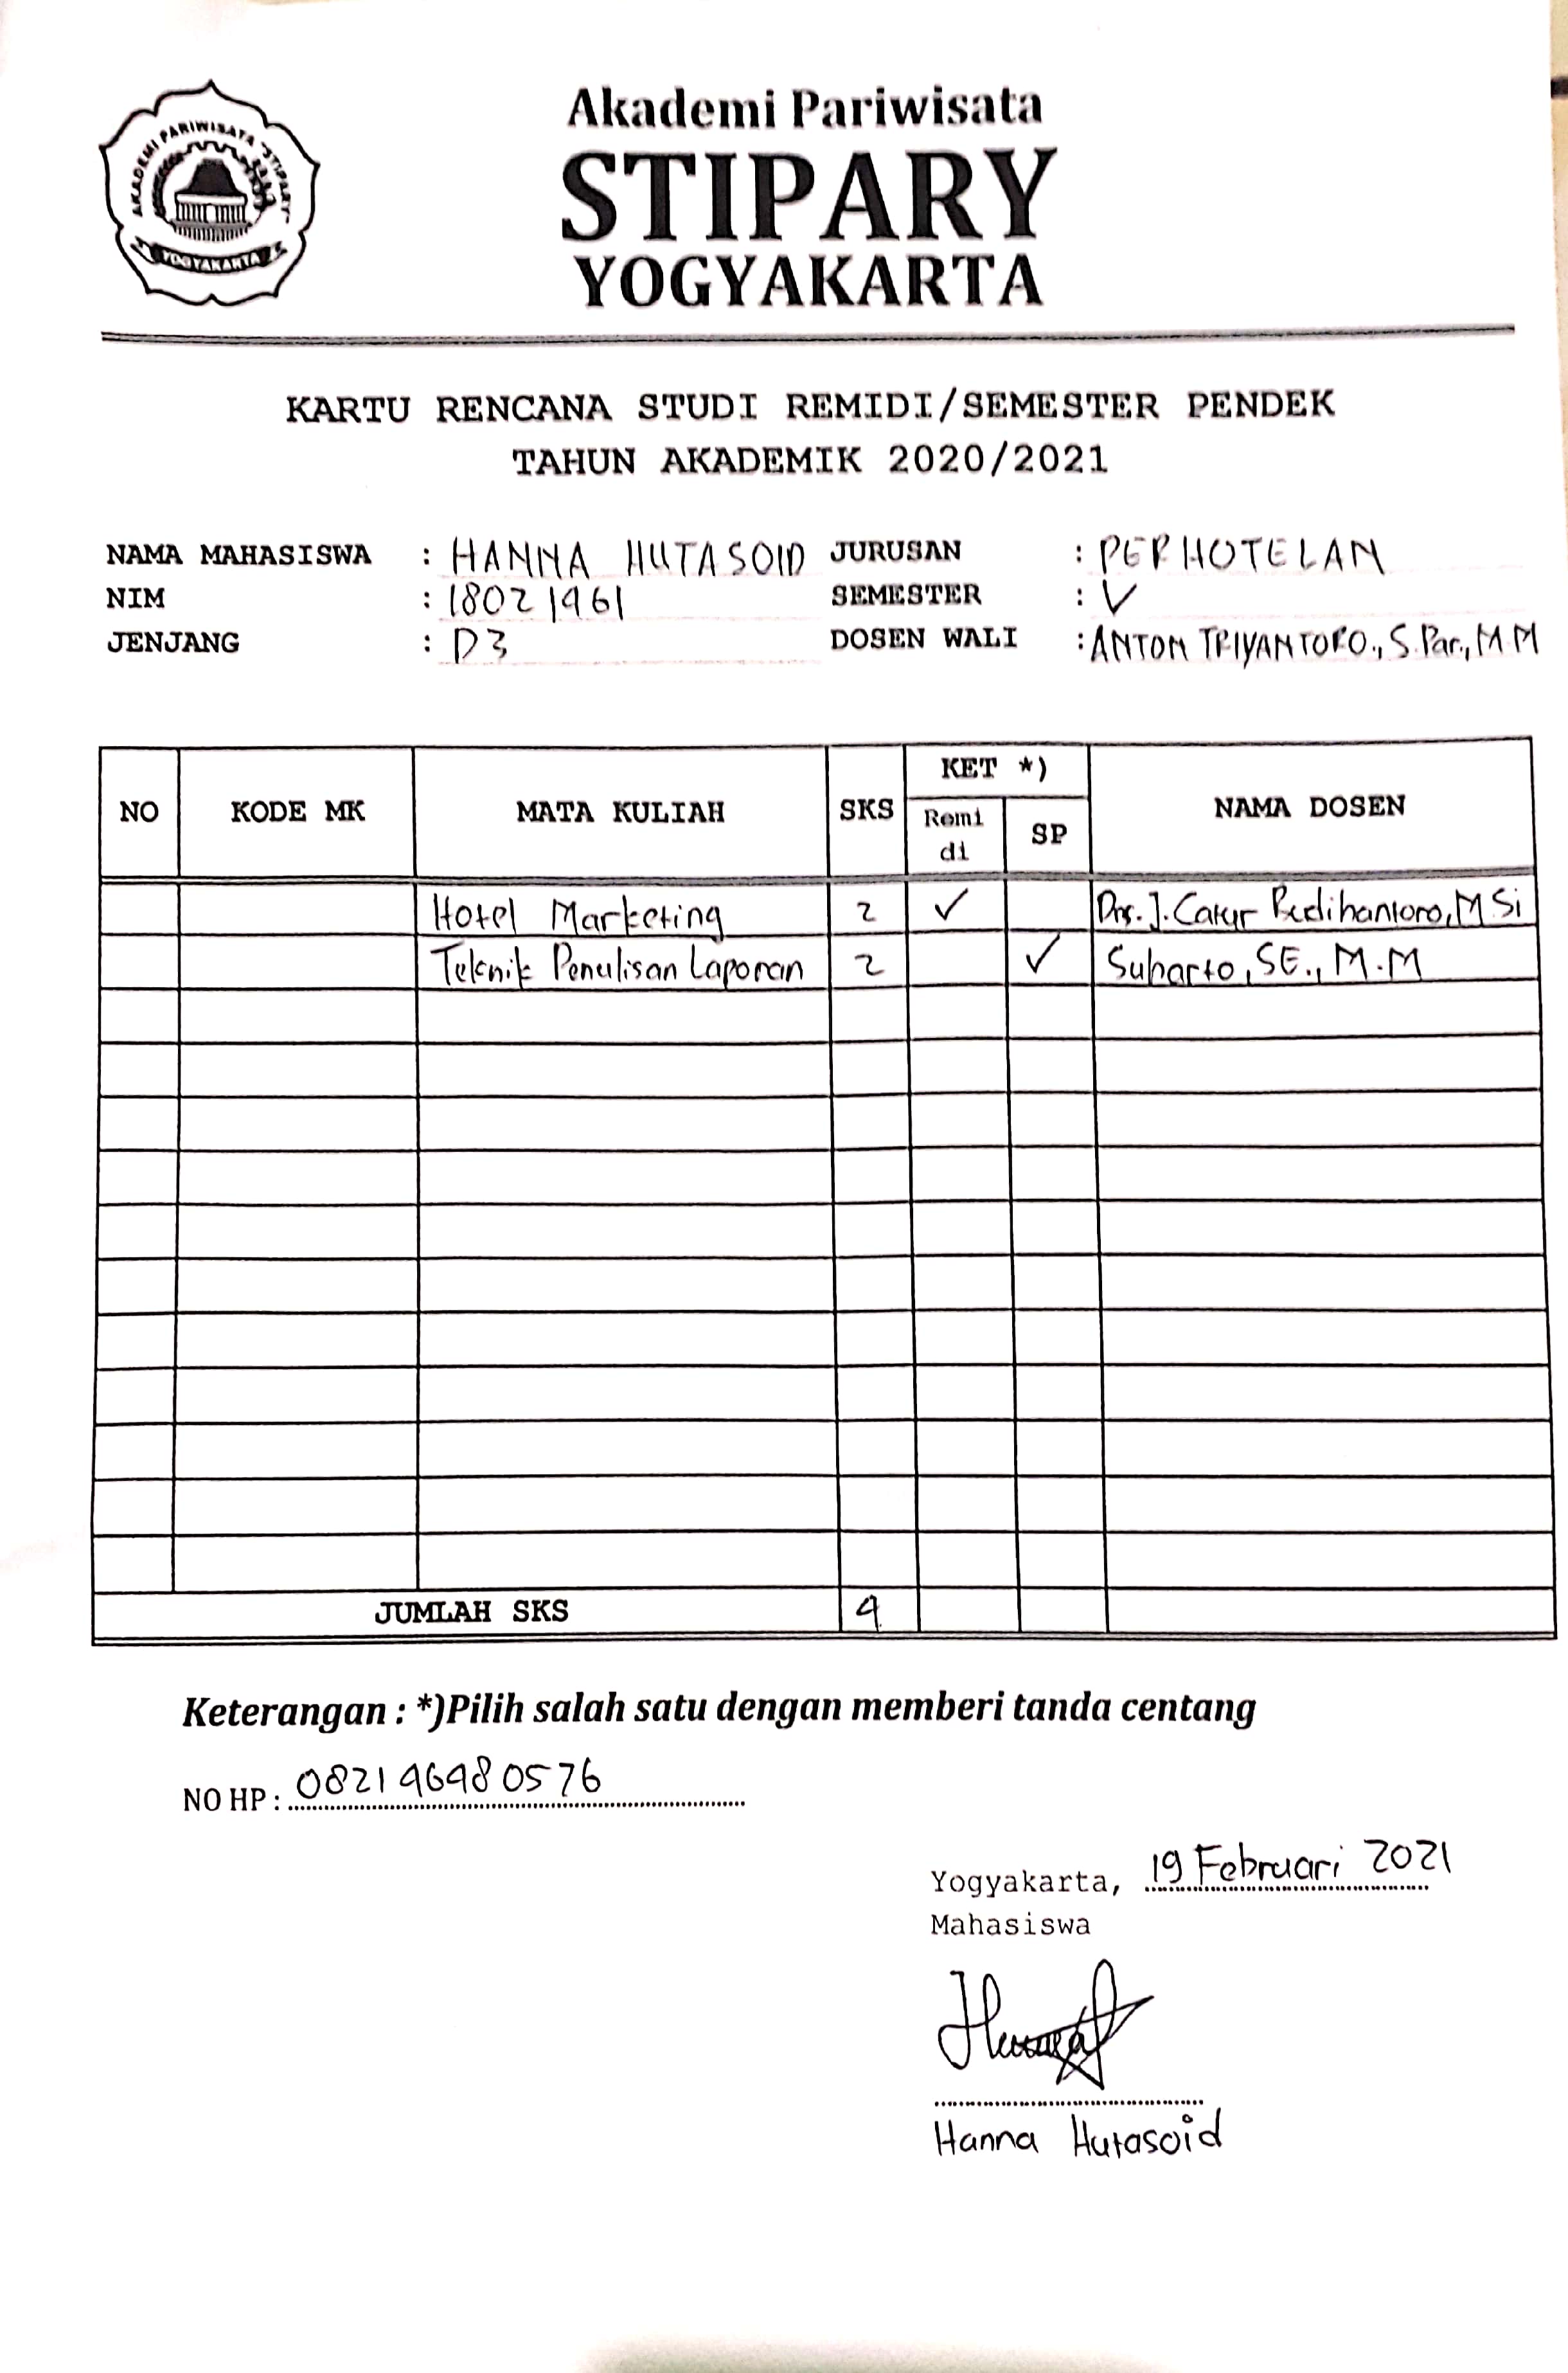 AKADEMI PARIWISATA "STIPARY"
YOGYAKARTA
Akademi Pariwisata
STIPARY
YOGYAKARTA
KARTU RENCANA STUDI REMIDI/SEMESTER PENDEK
TAHUN AKADEMIK 2020/2021
NAMA MAHASISWA : HANNA HUTASOID JURUSAN : PERHOTELAN
NIM : 18021961 SEMESTER : V
JENJANG : D3 DOSEN WALI : ANTON TRIYANTORO., S.Par., M.M
NO KODE MK MATA KULIAH SKS KET *) NAMA DOSEN
Remi di SP
Hotel Marketing 2 ✓ Drs. J. Catur Budihantoro, M Si
Teknik Penulisan Laporan 2 ✓ Suharto, SE., M.M
JUMLAH SKS 4
Keterangan : *)Pilih salah satu dengan memberi tanda centang
NO HP : 082146480576
Yogyakarta, 19 Februari 2021
Mahasiswa
Hanna Hutasoid